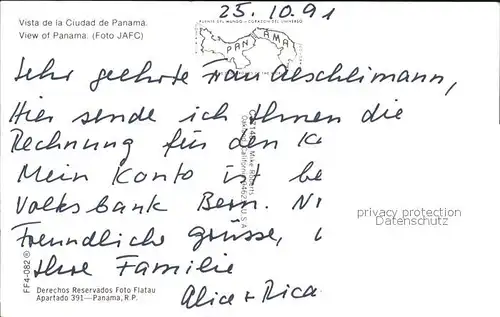 Vista de la Ciudad de Panamá.
View of Panama. (Foto JAFC)
25.10.91
PUENTE DEL MUNDO - CORAZON DEL UNIVERSO
PANAMA
Sehr geehrte Frau Aeschlimann,
Hier sende ich Ihnen die
Rechnung für den K
Mein Konto ist be
Volksbank Bern. N
Freundliche Grüsse,
Ihre Familie
Alice + Rica
Mike Roberts
Oakland, California 94662 U.S.A.
privacy protection
Datenschutz
FF4-082 ®
Derechos Reservados Foto Flatau
Apartado 391—Panama, R.P.